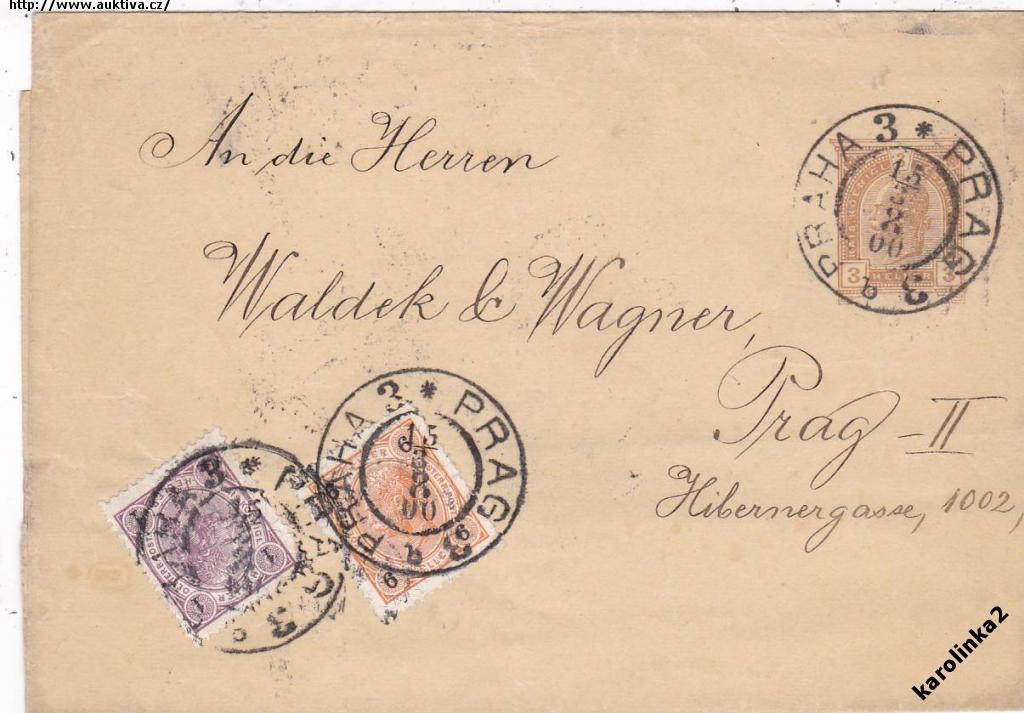 http://www.auktiva.cz/
An die Herren
Waldek & Wagner,
Prag - II
Hibernergasse, 1002,
PRAHA 3 * PRAG 3
a
15
00
3 HELLER 3
PRAHA 3 * PRAG 3
a
15
00
6
6
3 * PRAG 3
a
1
1
karolinka2